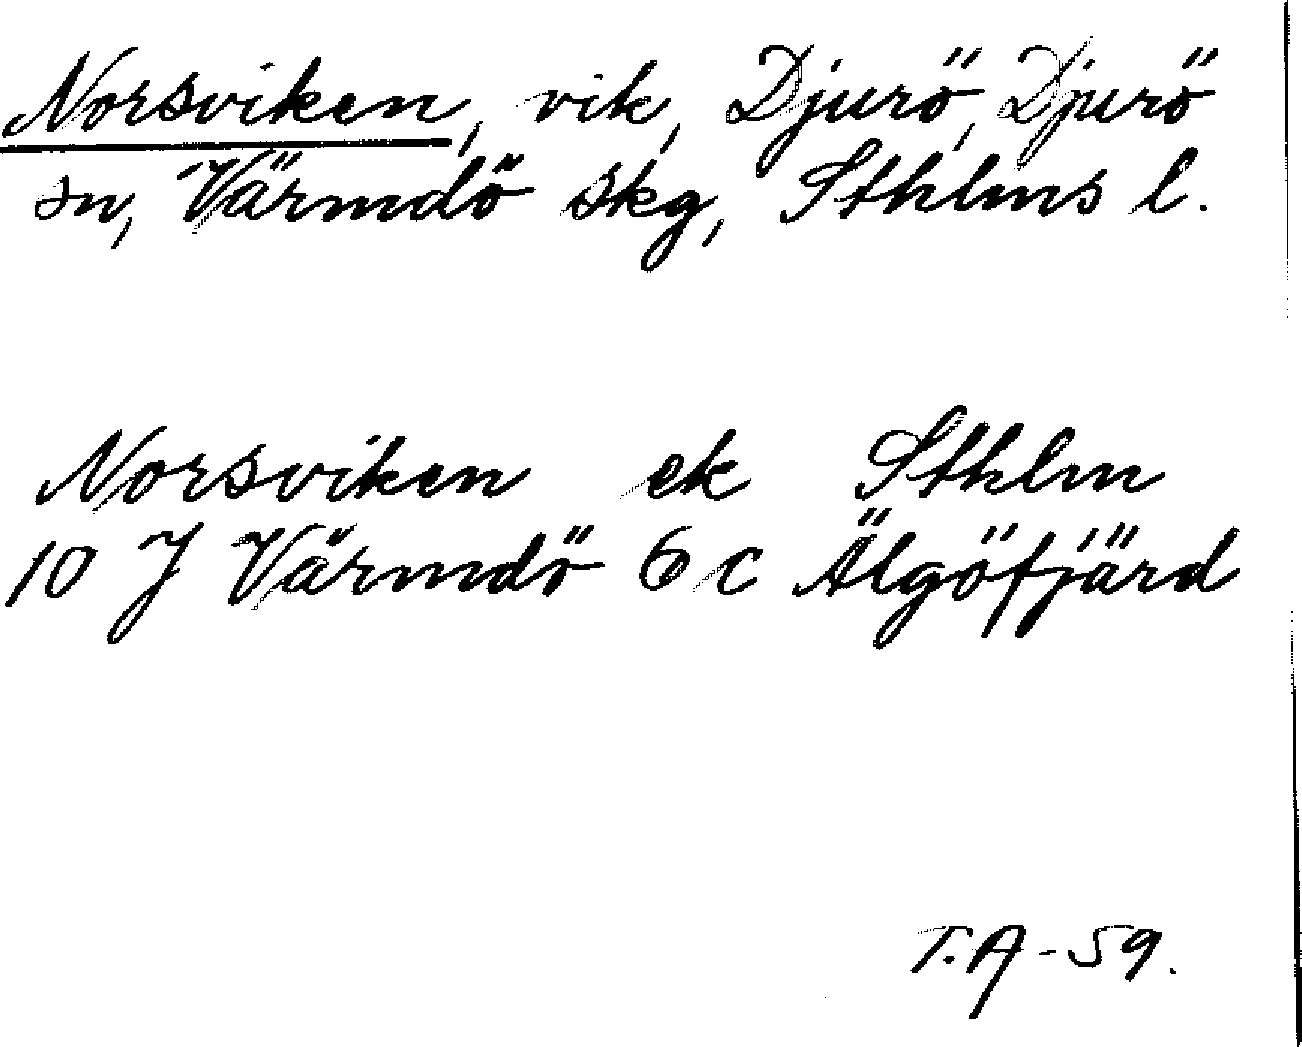 Norsviken, vik, Djurö, Djurö
sn, Värmdö skg, Sthlms l.
Norsviken ek Sthlm
10 J Värmdö 6 c Älgöfjärd
T.A-59.